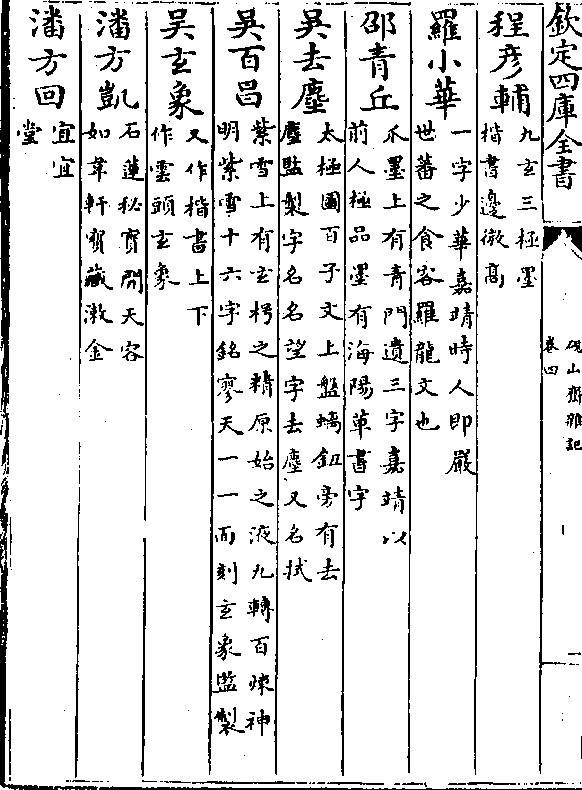 欽定四庫全書
硯山齋雜記
卷四
程彥輔
九玄三極墨
楷書邊微高
羅小華
一字少華嘉靖時人即嚴
世蕃之食客羅龍文也
邵青丘
爪墨上有青門遺三字嘉靖以
前人極品墨有海陽草書字
吳去塵
太極圖百子文上盤螭鈕旁有去
塵監製字名名望字去塵又名拭
吳百昌
紫雪上有玄枵之精原始之液九轉百煉神
明紫雪十六字銘廖天一一而刻玄象監製
吳玄象
又作楷書上下
作雲頭玄象
潘方凱
石蓮秘寳開天容
如韋軒寳藏漱金
潘方回
宜宜
堂